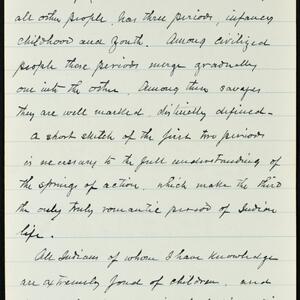 all other people, has three periods, infancy
childhood and youth. Among civilized
people those periods merge gradually
one into the other. Among these savages
they are well marked, distinctly defined—
A short sketch of the first two periods
is necessary to the full understanding of
the springs of action, which make the third
the only truly romantic period of Indian
life.
All Indians of whom I have knowledge
are extremely fond of children, and